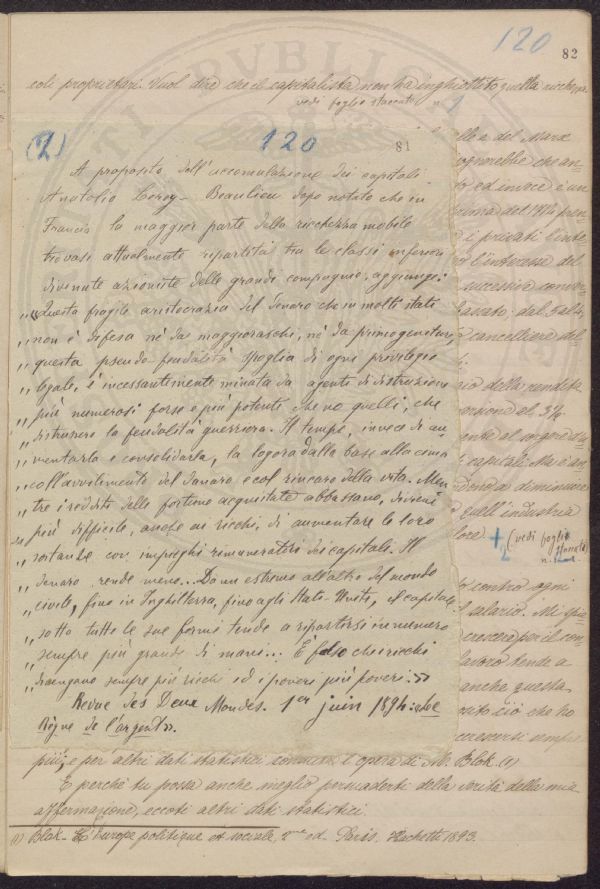 120
82
coli proprietari. Vuol dire che il capitalista non ha inghiottito quella ricchezza
vedi foglio staccato n. 1
(2) 120 81
A proposito dell'accumulazione dei capitali
Anatolio Leroy-Beaulieu dopo notato che in
Francia la maggior parte della ricchezza mobile
trovasi attualmente ripartita tra le classi inferiori
divenute azioniste delle grandi compagnie, aggiunge:
„ «questa fragile aristocrazia del denaro che in molti stati
„ non è difesa nè da maggioraschi, nè da primogeniture,
„ questa pseudo-feudalità spoglia di ogni privilegio
„ legale, è incessantemente minata da agenti di distruzione
„ più numerosi forse e più potenti che no quelli, che
„ distrussero la feudalità guerriera. Il tempo, invece di au-
„ mentarla e consolidarla, la logora dalla base alla cima
„ coll'avvilimento del denaro e col rincaro della vita. Men-
„ tre i redditi delle fortune acquistate abbassano, diviene
„ più difficile, anche ai ricchi, di aumentare le loro
„ sostanze con impieghi rimuneratori dei capitali. Il
„ denaro rende meno... Da un estremo all'altro del mondo
„ civile, fino in Inghilterra, fino agli Stati-Uniti, il capitale
„ sotto tutte le sue forme tende a ripartirsi in numero
„ sempre più grande di mani... È falso che i ricchi
„ divengano sempre più ricchi ed i poveri più poveri.»
Revue des Deux Mondes. 1er juin 1894 «Le
Règne de l'argent».
e del Marx
che an-
ed invece è un
prima del 1914
i privati l'inte
l'interesse del
successiva conver
dal 5 al 4,
cancelliere del
della rendita
conversione al 3%
capitali. Ma è an
diminuire
dell'industria
+ 2 (vedi foglio
staccato
n.
contro ogni
salario. Mi
per il con
lavoro tende a
anche questa
ciò che ho
accrescersi sempre
più; e per altri dati statistici l'opera di M. Blok. (1)
E perchè tu possa anche meglio persuaderti della verità della mia
affermazione, eccoti altri dati statistici.
(1) Blok - L'Europe politique et sociale, 2me ed. Paris. Hachette 1893.